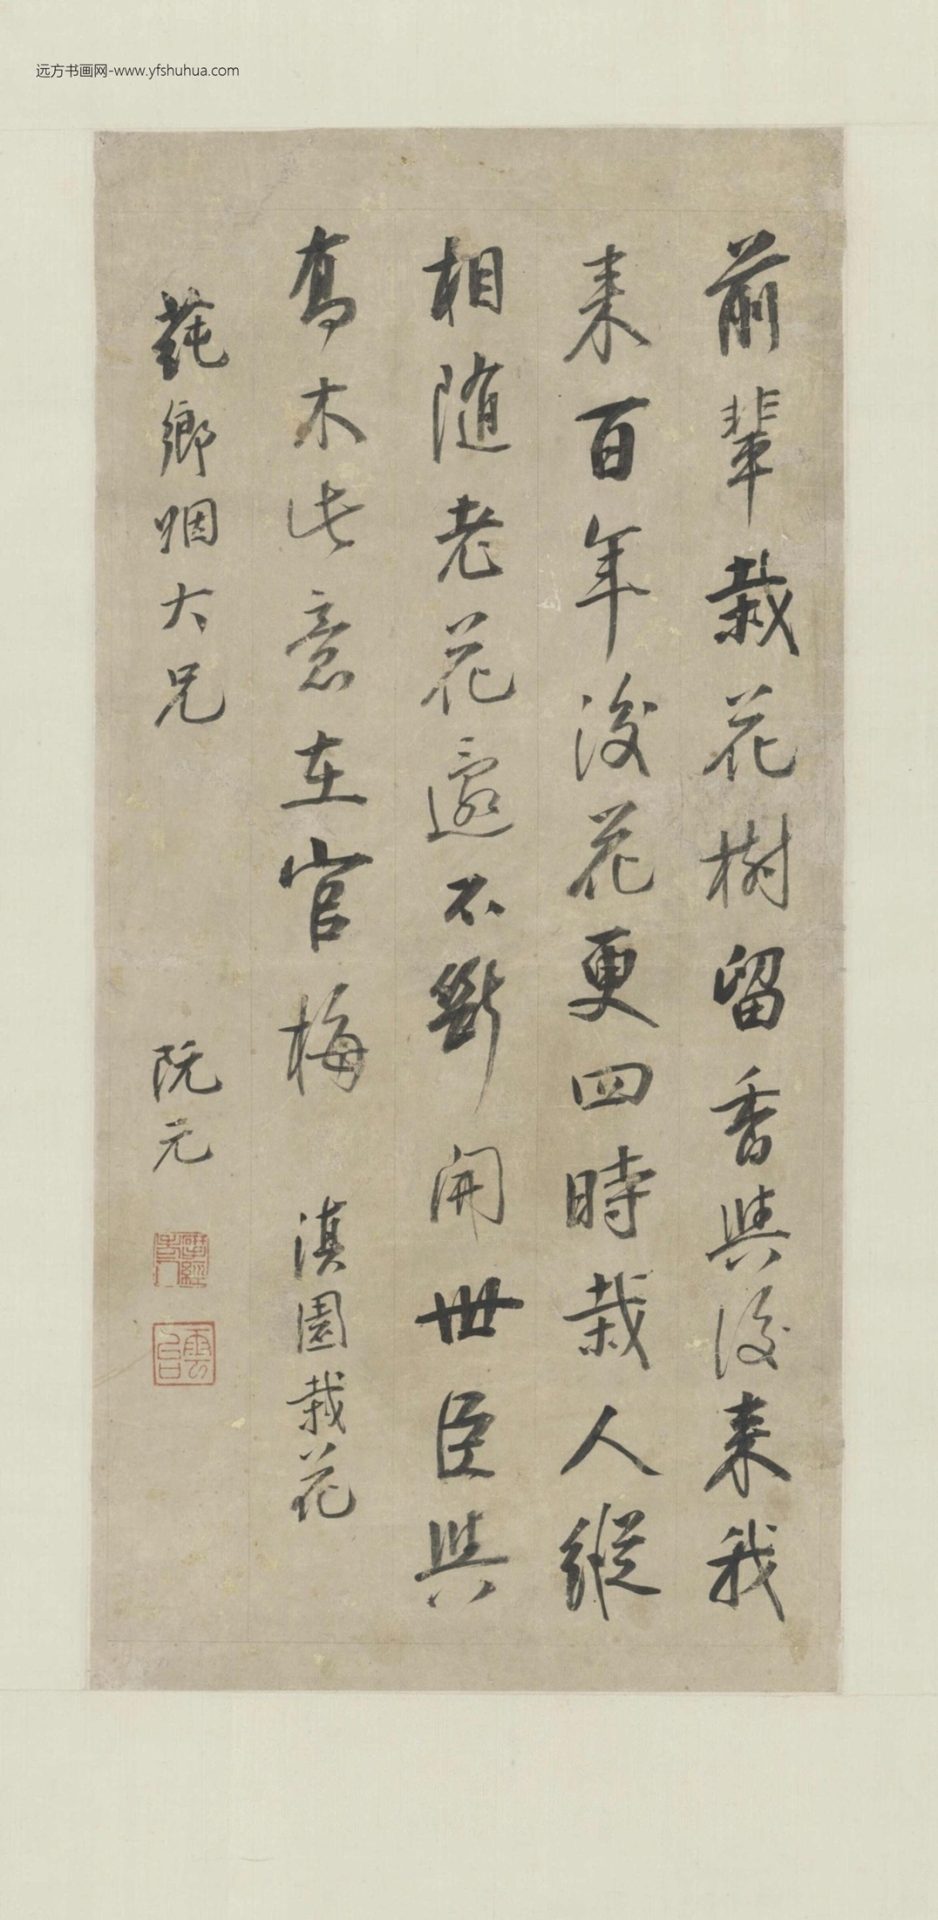 远方书画网-www.yfshuhua.com
前輩栽花樹留香與後来我
来百年後花更四時栽人縱
相随老花還不斷開世臣與
喬木此意在官梅 滇園栽花
鄉姻大兄 阮元
雷經
雲台